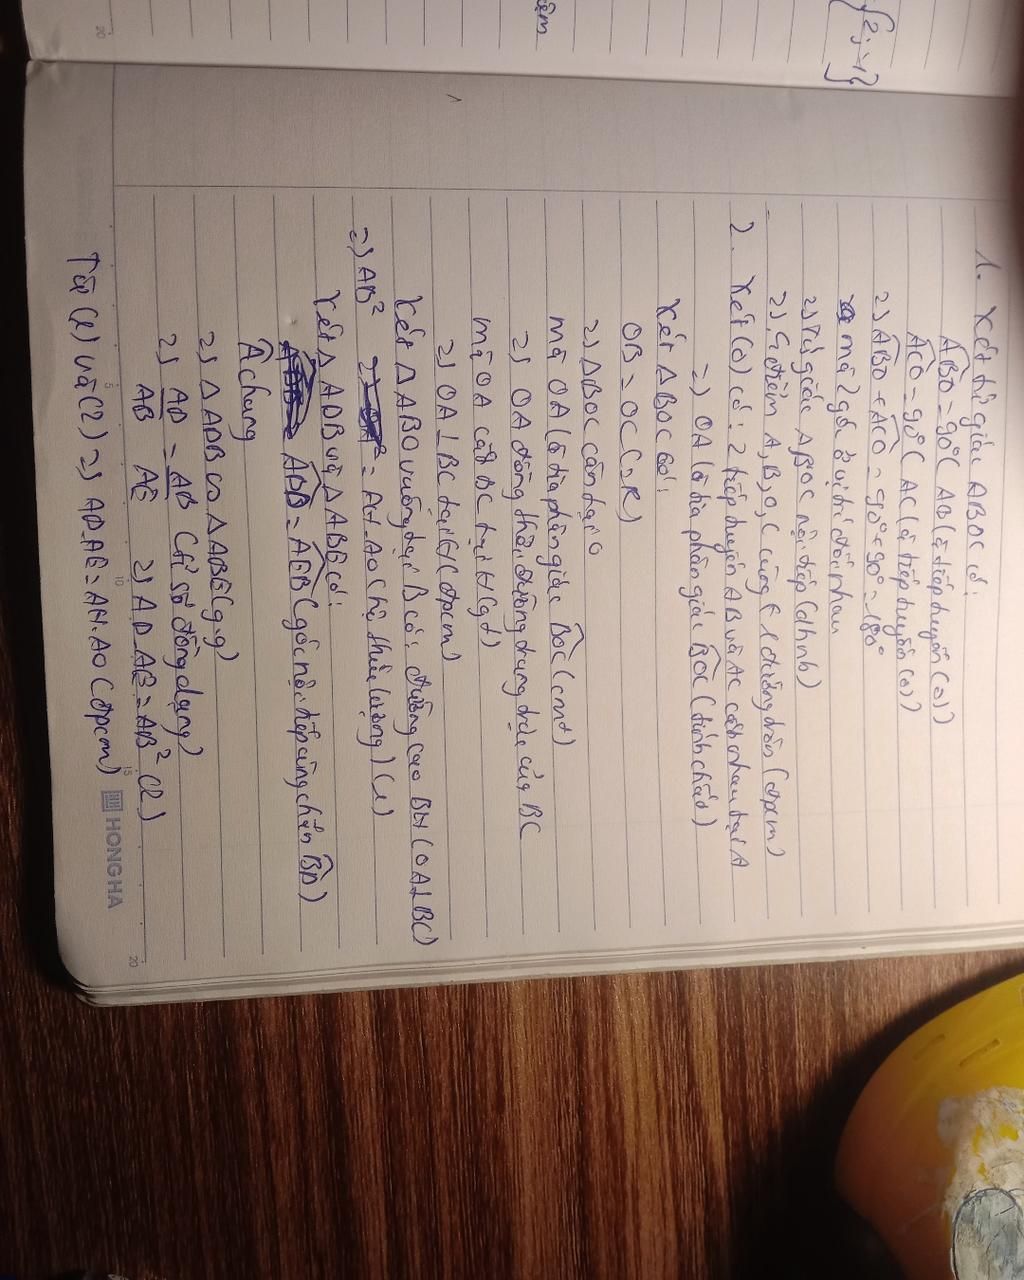 {2; -1}
1. Xét tứ giác ABOC có:
ABO = 90° (AB là tiếp tuyến (O))
ACO = 90° (AC là tiếp tuyến (O))
=) ABO + ACO = 90° + 90° = 180°
mà 2 góc ở vị trí đối nhau
=) Tứ giác ABOC nội tiếp (dhnb)
=) 4 điểm A, B, O, C cùng ∈ 1 đường tròn (đpcm)
2. Xét (O) có: 2 tiếp tuyến AB và AC cắt nhau tại A
=) OA là tia phân giác BOC (tính chất)
Xét Δ BOC có:
OB = OC (= R)
=) ΔBOC cân tại O
mà OA là tia phân giác BOC (cmt)
=) OA đồng thời đường trung trực của BC
mà OA cắt BC tại H (gt)
=) OA ⊥ BC tại H (đpcm)
Xét Δ ABO vuông tại B có: đường cao BH (OA ⊥ BC)
=) AB² = AH . AO (hệ thức lượng) (1)
Xét Δ ADB và Δ ABE có:
ADB = AEB (góc nội tiếp cùng chắn BD)
A chung
=) Δ ADB ∽ Δ ABE (g.g)
=) AD/AB = AB/AE (tỉ số đồng dạng)
=) AD . AE = AB² (2)
Từ (1) và (2) =) AD . AE = AH . AO (đpcm)
HONGHA
5
10
15
20
20